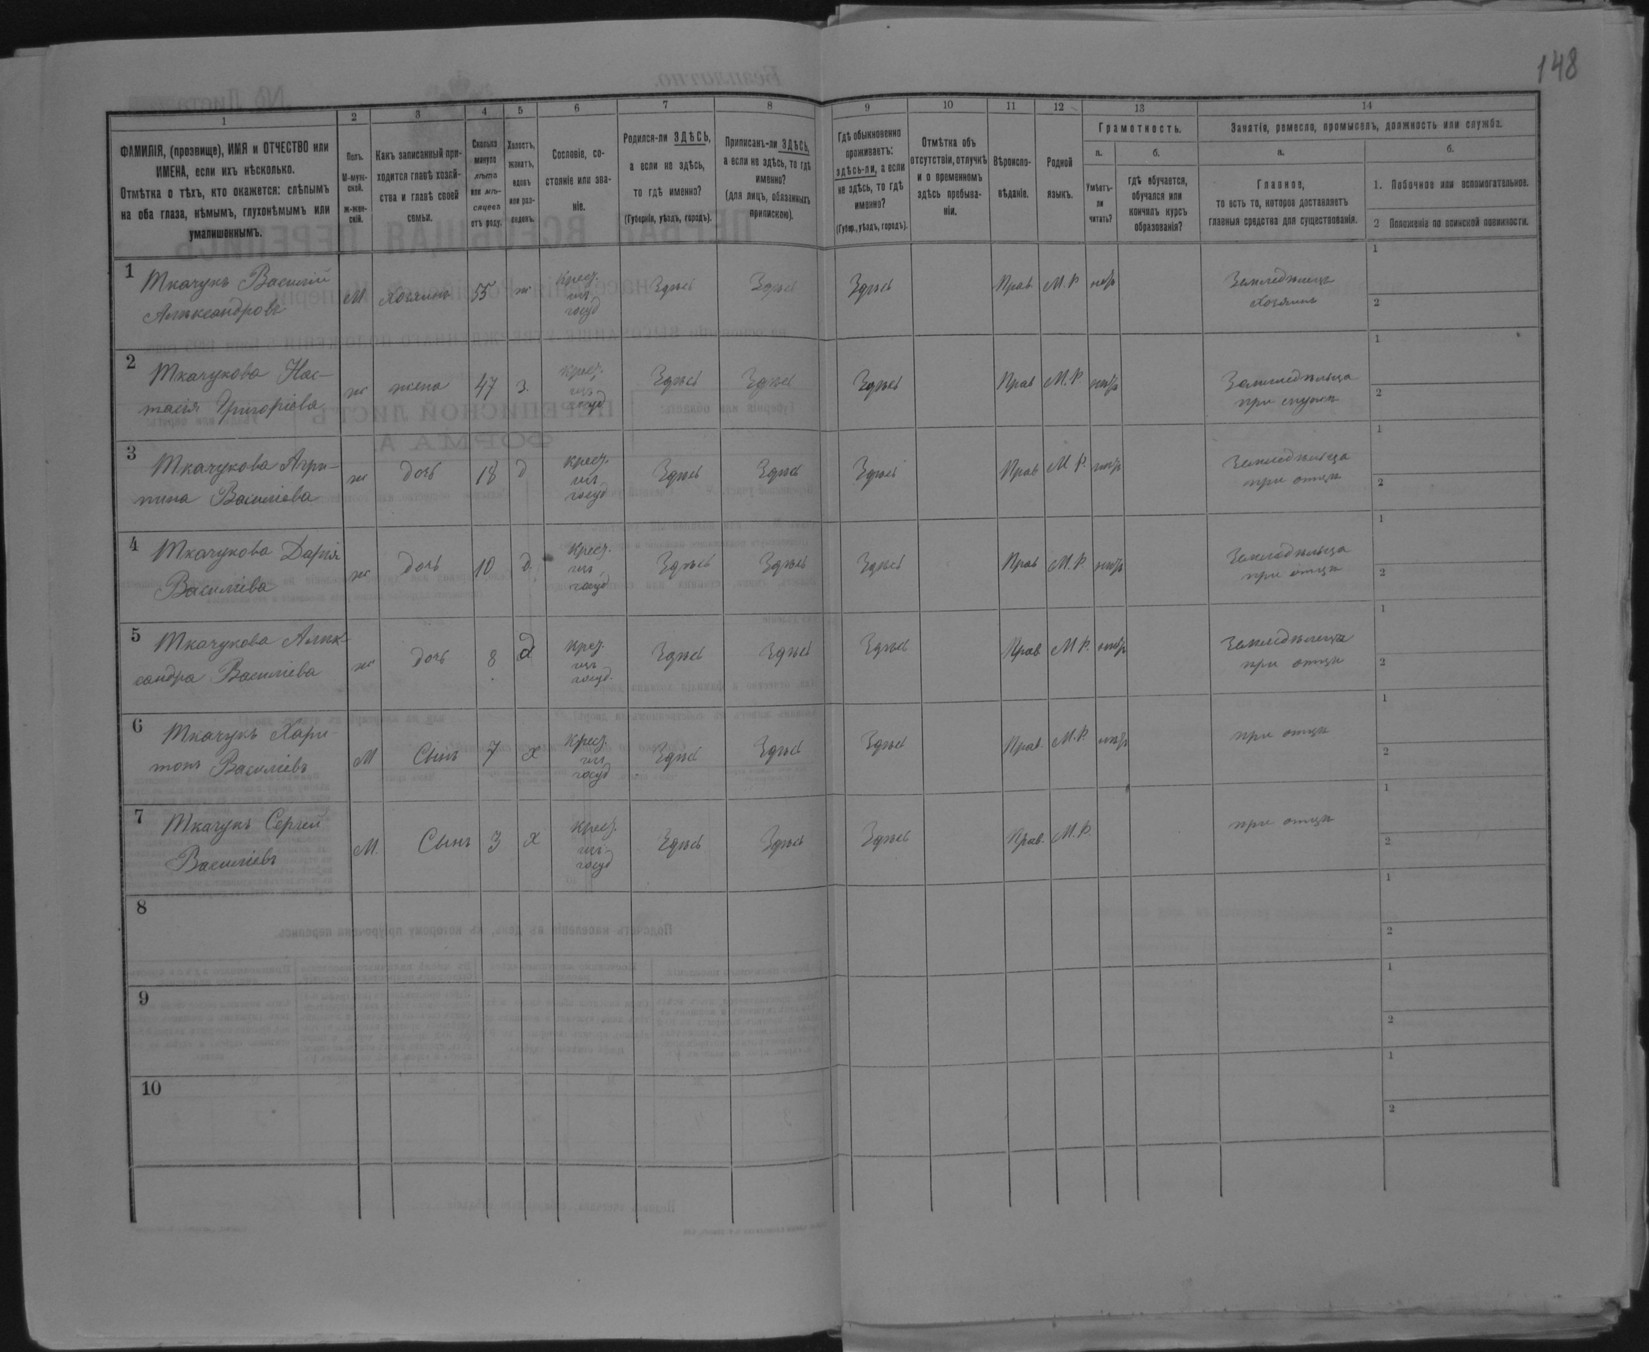 148
1 2 3 4 5 6 7 8 9 10 11 12 13 14
ФАМИЛІЯ, (прозвище), ИМЯ и ОТЧЕСТВО или
ИМЕНА, если ихъ нѣсколько.
Отмѣтка о тѣхъ, кто окажется: слѣпымъ
на оба глаза, нѣмымъ, глухонѣмымъ или
умалишоннымъ.
Полъ.
М-муж-
ской.
ж-жен-
скій.
Какъ записанный при-
ходится главѣ хозяй-
ства и главѣ своей
семьи.
Сколько
минуло
лѣтъ
или мѣ-
сяцевъ
отъ роду.
Холостъ,
женатъ,
вдовъ
или раз-
веденъ.
Сословіе, со-
стояніе или зва-
ніе.
Родился-ли ЗДѢСЬ,
а если не здѣсь,
то гдѣ именно?
(Губернія, уѣздъ, городъ).
Приписанъ-ли ЗДѢСЬ,
а если не здѣсь, то гдѣ
именно?
(для лицъ, обязанныхъ
припискою).
Гдѣ обыкновенно
проживаетъ:
здѣсь-ли, а если
не здѣсь, то гдѣ
именно?
(Губер., уѣздъ, городъ).
Отмѣтка объ
отсутствіи, отлучкѣ
и о временномъ
здѣсь пребыва-
ніи.
Вѣроиспо-
вѣданіе.
Родной
языкъ.
Грамотность.
а.
Умѣетъ-
ли
читать?
б.
гдѣ обучается,
обучался или
кончилъ курсъ
образованія?
Занятіе, ремесло, промыселъ, должность или служба.
а.
Главное,
то есть то, которое доставляетъ
главныя средства для существованія.
б.
1. Побочное или вспомогательное.
2 Положеніе по воинской повинности.
1 Ткачукъ Василій
Александровъ
М Хозяинъ 55 ж Крест.
изъ
госуд
Здѣсь Здѣсь Здѣсь Прав М.Р нѣтъ
Земледѣлецъ
Хозяинъ
1
2
2 Ткачукова Нас-
тасія Григоріева
ж жена 47 з. Крест.
изъ
госуд
Здѣсь Здѣсь Здѣсь Прав М.Р нѣтъ
Земледѣлица
при мужѣ
1
2
3 Ткачукова Агри-
пина Василіева
ж дочь 18 д Крест.
изъ
госуд
Здѣсь Здѣсь Здѣсь Прав М.Р. нѣтъ
Земледѣлица
при отцѣ
1
2
4 Ткачукова Дарія
Василіева
ж дочь 10 д Крест.
изъ
госуд
Здѣсь Здѣсь Здѣсь Прав М.Р. нѣтъ
Земледѣлица
при отцѣ
1
2
5 Ткачукова Алек-
сандра Василіева
ж дочь 8 д Крест.
изъ
госуд.
Здѣсь Здѣсь Здѣсь Прав М.Р. нѣтъ
Земледѣлица
при отцѣ
1
2
6 Ткачукъ Хари-
тонъ Василіевъ
М Сынъ 7 х Крест.
изъ
госуд
Здѣсь Здѣсь Здѣсь Прав. М.Р. нѣтъ
при отцѣ
1
2
7 Ткачукъ Сергей
Василіевъ
М. Сынъ 3 х Крест.
изъ
госуд
Здѣсь Здѣсь Здѣсь Прав. М.Р.
при отцѣ
1
2
8
1
2
9
1
2
10
1
2